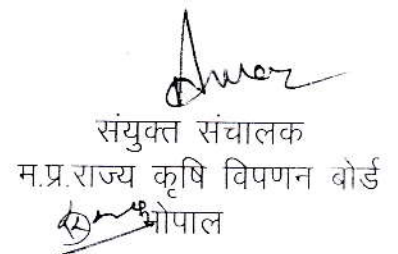 संयुक्त संचालक
म.प्र.राज्य कृषि विपणन बोर्ड
भोपाल